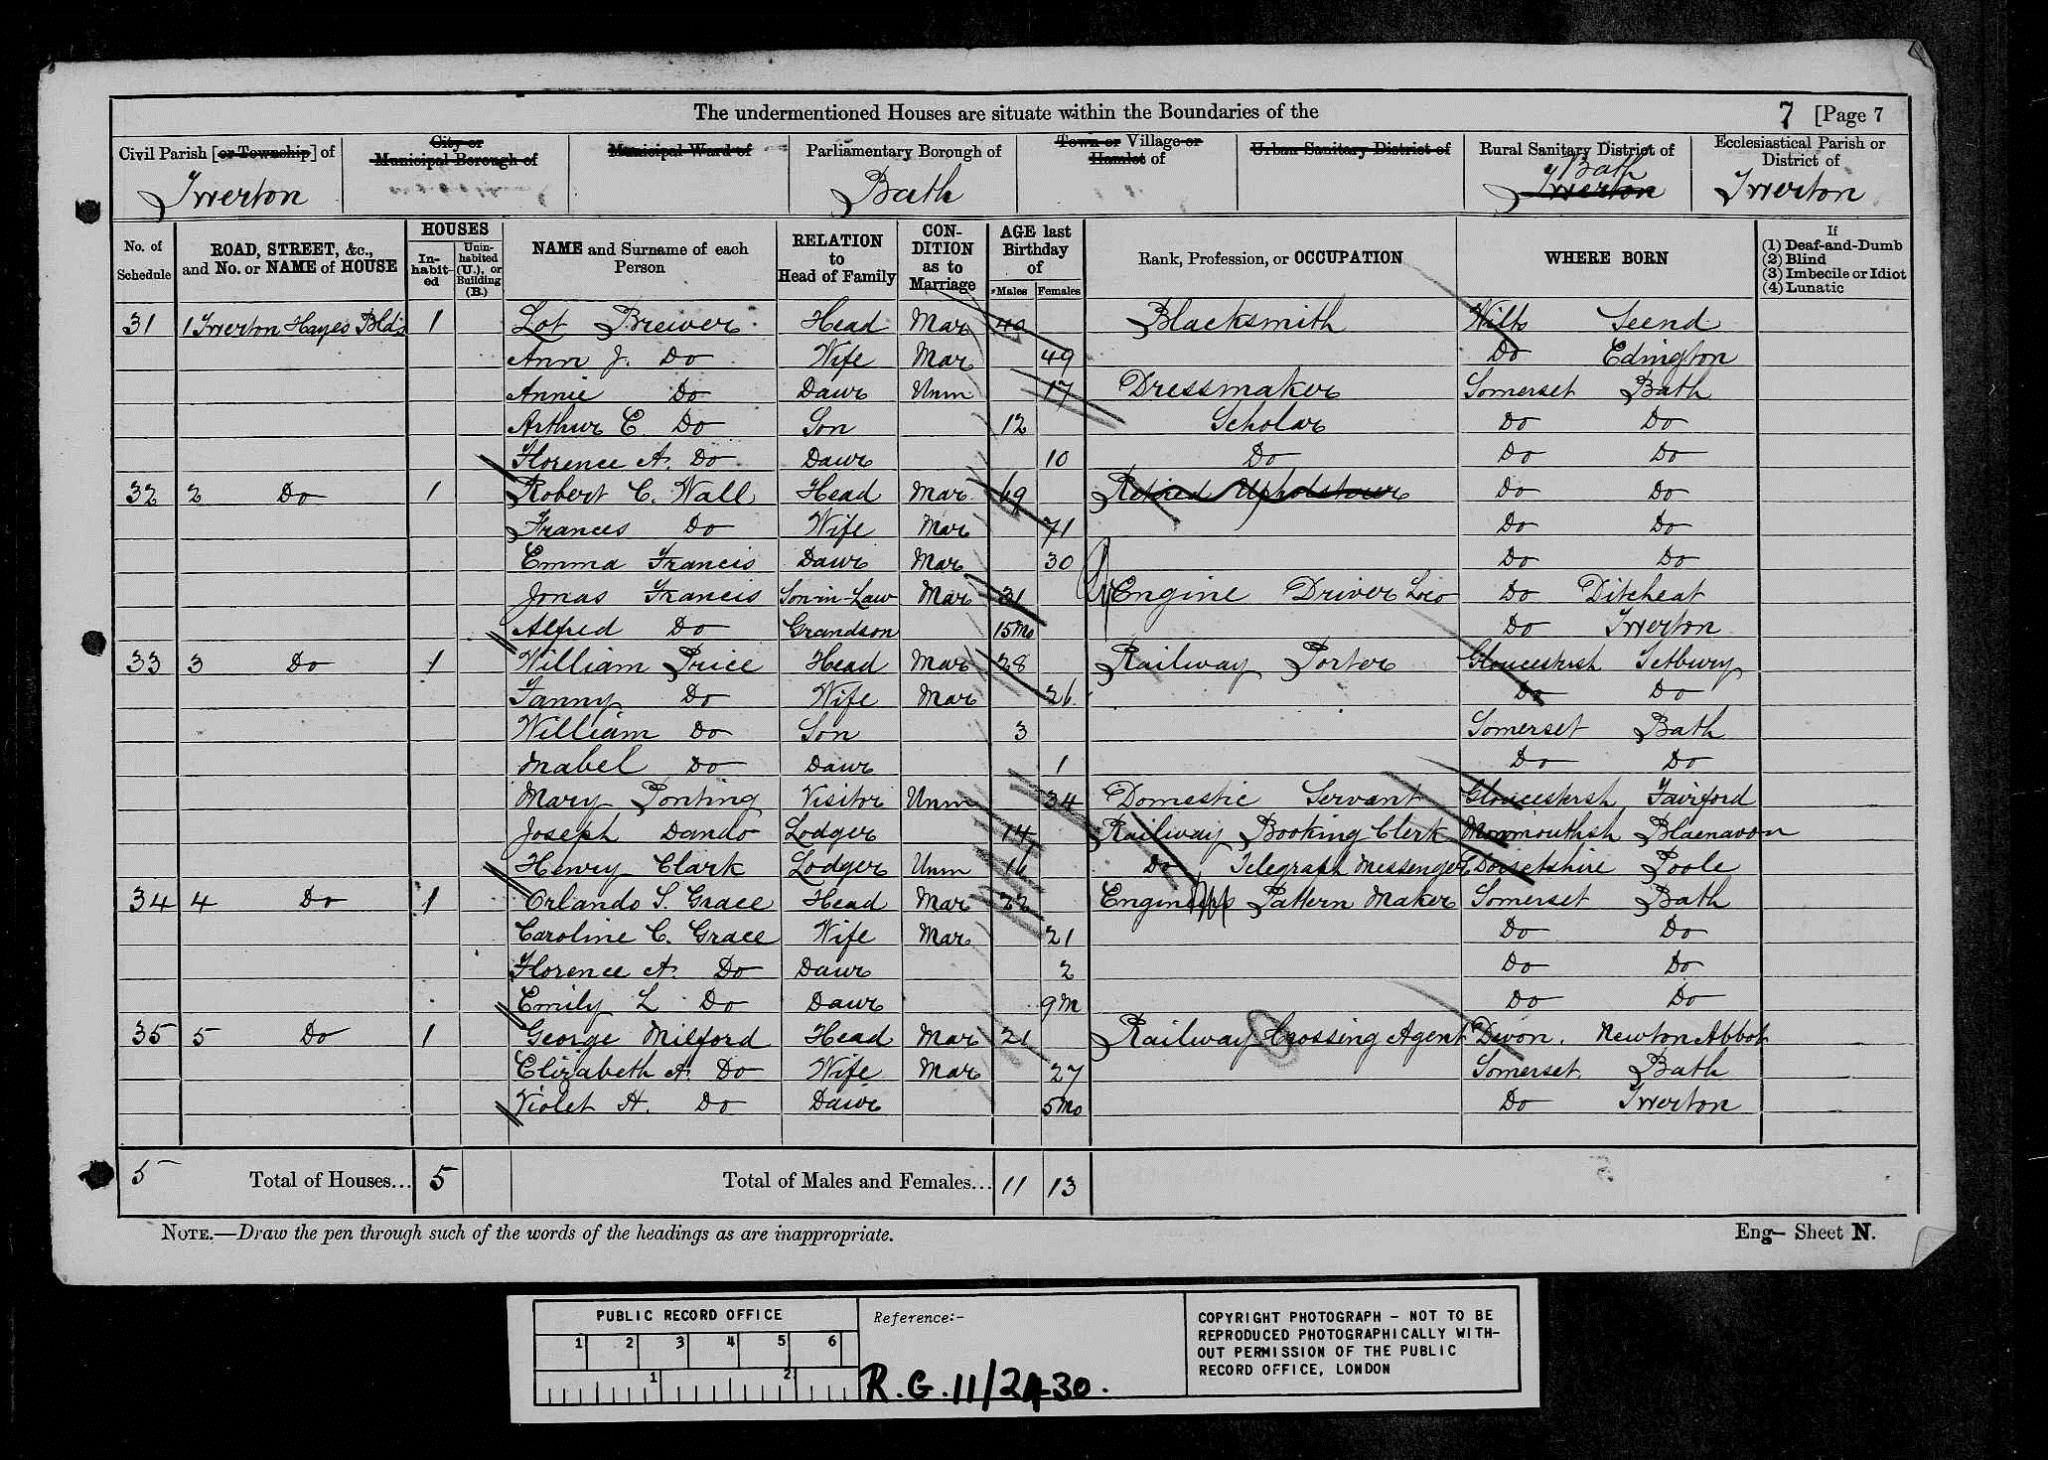 The undermentioned Houses are situate within the Boundaries of the 7 [Page 7
Civil Parish [or Township] of City or Municipal Borough of Municipal Ward of Parliamentary Borough of Town or Village or Hamlet of Urban Sanitary District of Rural Sanitary District of Ecclesiastical Parish or District of
Twerton Bath Bath Twerton Twerton
No. of Schedule ROAD, STREET, &c., and No. or NAME of HOUSE HOUSES In-habit-ed Unin-habited (U.), or Building (B.) NAME and Surname of each Person RELATION to Head of Family CON-DITION as to Marriage AGE last Birthday of Males Females Rank, Profession, or OCCUPATION WHERE BORN If (1) Deaf-and-Dumb (2) Blind (3) Imbecile or Idiot (4) Lunatic
31 1 Twerton Hayes Blds 1 Lot Brewer Head Mar Blacksmith Wilts Seend
Ann J. Do Wife Mar 49 Do Edington
Annie Do Daur Unm 17 Dressmaker Somerset Bath
Arthur E. Do Son 12 Scholar Do Do
Florence A. Do Daur 10 Do Do Do
32 2 Do 1 Robert C. Wall Head Mar 69 Retired Upholsterer Do Do
Frances Do Wife Mar 71 Do Do
Emma Francis Daur Mar 30 Do Do
Jonas Francis Son-in-Law Mar 31 Engine Driver Loco Do Ditcheat
Alfred Do Grandson 15Mo Do Twerton
33 3 Do 1 William Price Head Mar 28 Railway Porter Gloucestersh Tetbury
Fanny Do Wife Mar 26 Do Do
William Do Son 3 Somerset Bath
Mabel Do Daur 1 Do Do
Mary Ponting Visitor Unm 34 Domestic Servant Gloucestersh Fairford
Joseph Dando Lodger 14 Railway Booking Clerk Monmouthsh Blaenavon
Henry Clark Lodger Unm 16 Do Telegraph Messenger Dorsetshire Poole
34 4 Do 1 Orlando S. Grace Head Mar 22 Engineers Pattern Maker Somerset Bath
Caroline C. Grace Wife Mar 21 Do Do
Florence A. Do Daur 2 Do Do
Emily L Do Daur 9M Do Do
35 5 Do 1 George Milford Head Mar 21 Railway Crossing Agent Devon. Newton Abbot
Elizabeth A. Do Wife Mar 27 Somerset. Bath
Violet H. Do Daur 5Mo Do Twerton
5 Total of Houses... 5 Total of Males and Females... 11 13
NOTE.—Draw the pen through such of the words of the headings as are inappropriate. Eng— Sheet N.
PUBLIC RECORD OFFICE
1 2 3 4 5 6
1 2
Reference:-
R.G. 11/2430.
COPYRIGHT PHOTOGRAPH - NOT TO BE
REPRODUCED PHOTOGRAPHICALLY WITH-
OUT PERMISSION OF THE PUBLIC
RECORD OFFICE, LONDON